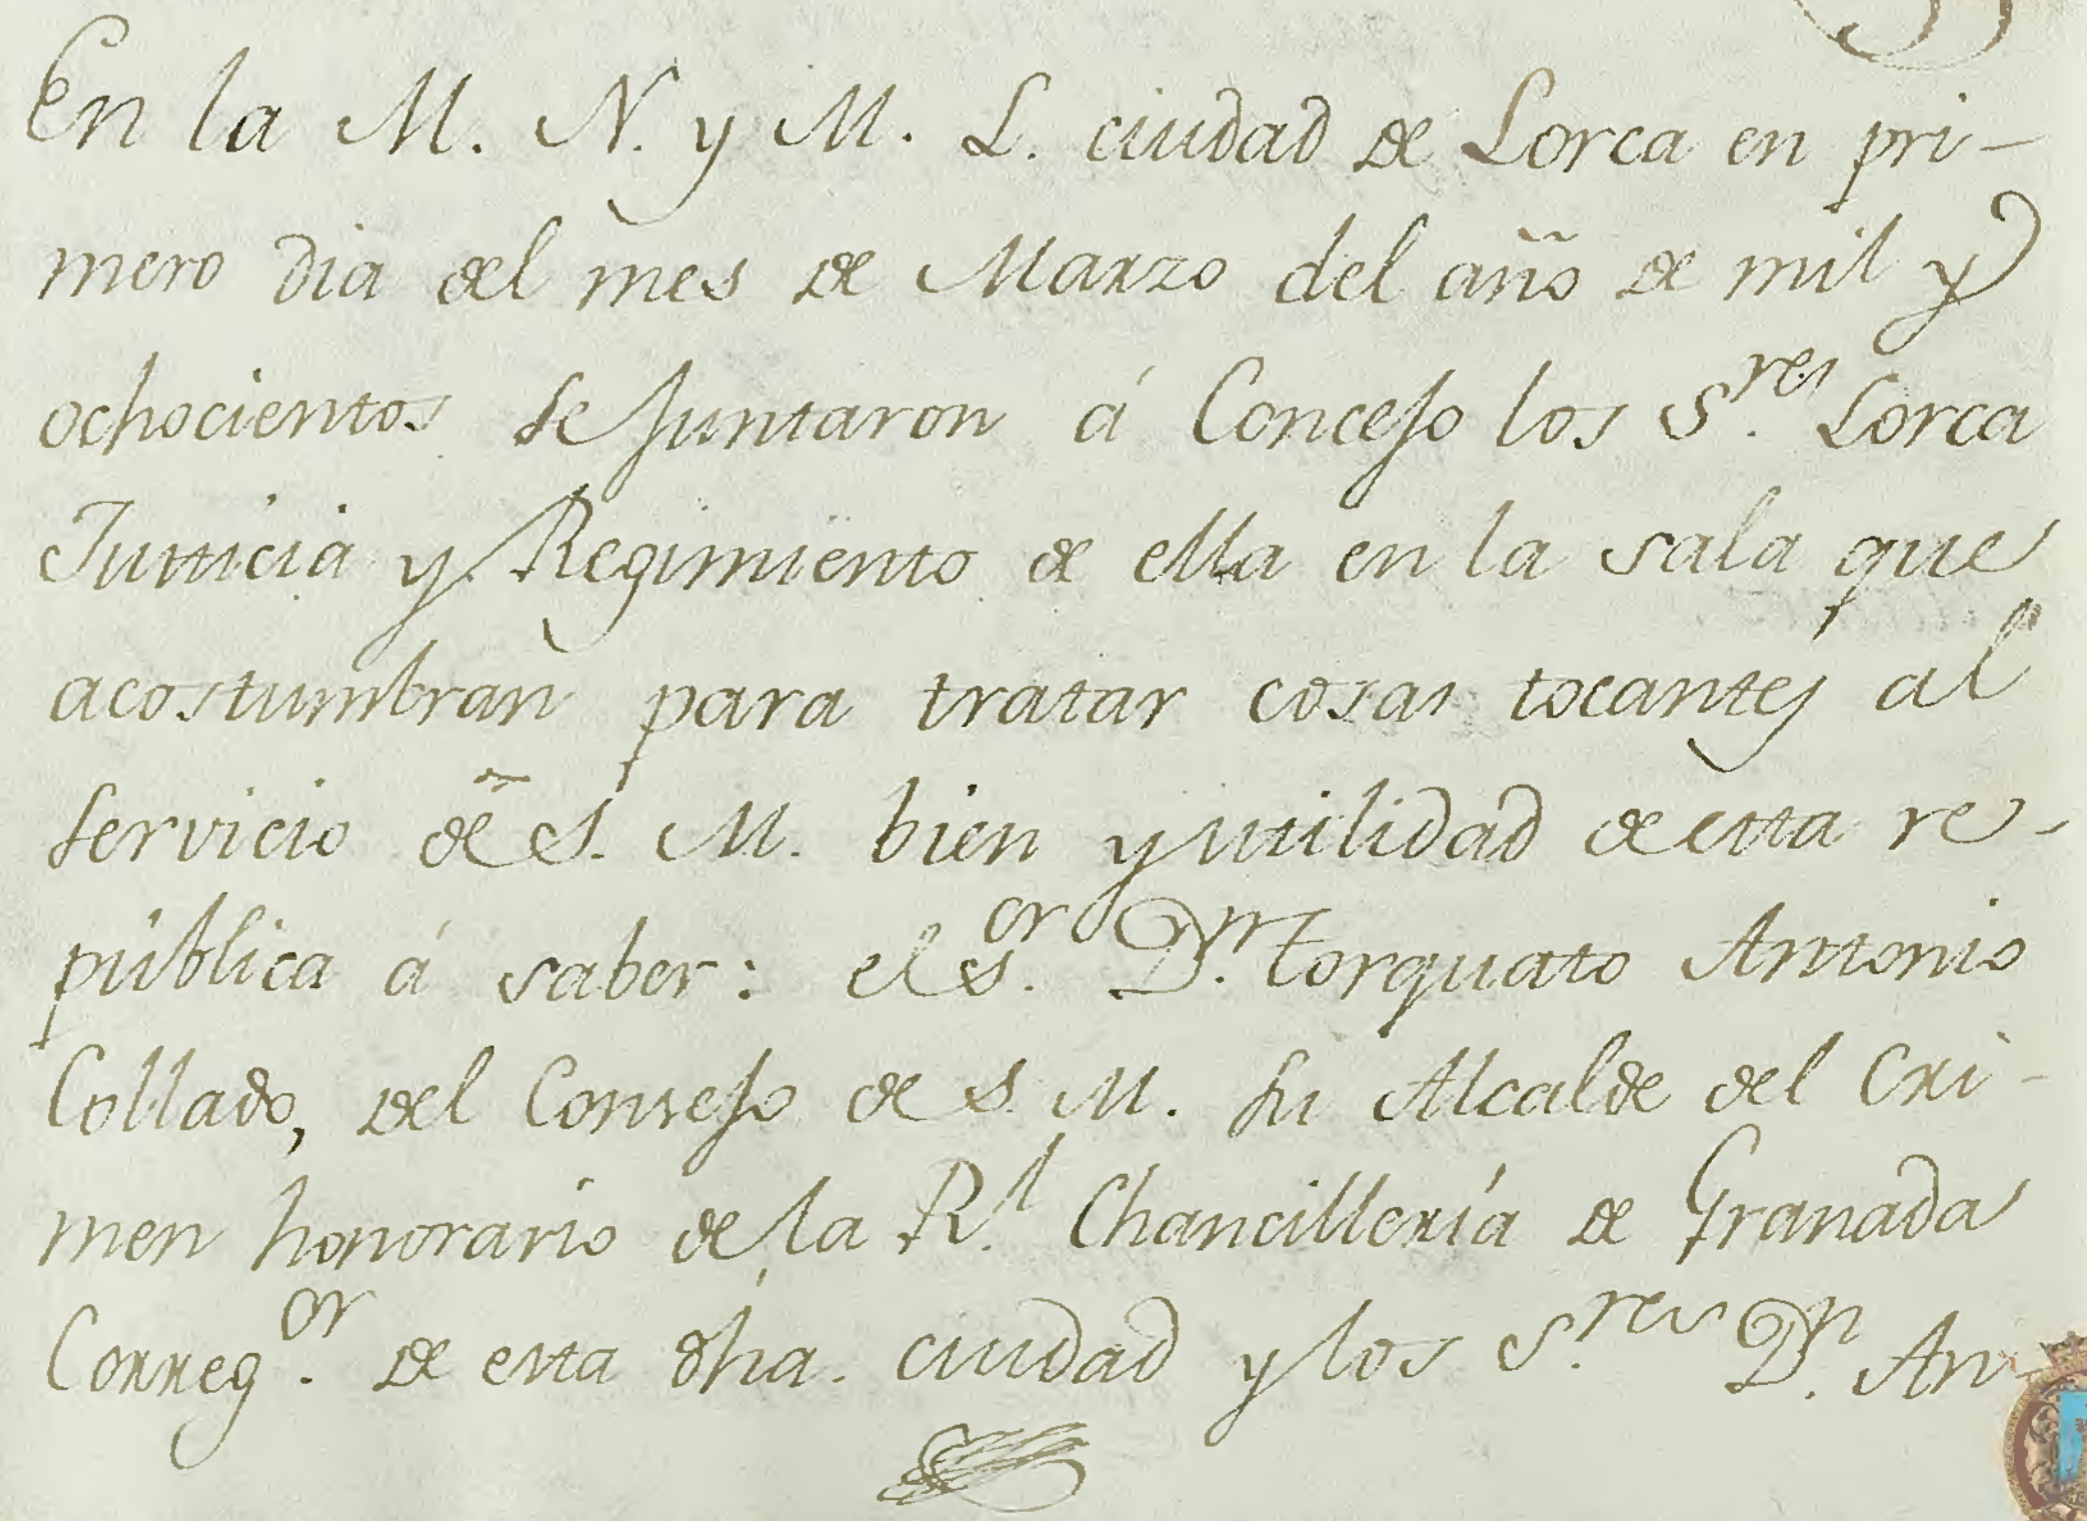 En la M. N. y M. L. ciudad de Lorca en pri-
mero dia del mes de Marzo del año de mil y
ochocientos se juntaron á Concejo los S.res Lorca
Justicia y Regimiento de ella en la sala que
acostumbran para tratar cosas tocantes al
servicio de S. M. bien y utilidad de esta re-
pública á saber: el s.or D.n Torquato Antonio
Collado, del Consejo de S. M. su Alcalde del Cri-
men honorario de la R.l Chancillería de Granada
Correg.or de esta dha. ciudad y los S.res D.n An-